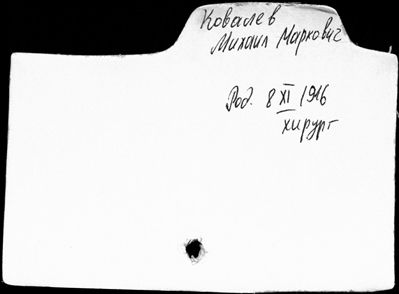 Ковалев
Михаил Маркович
Род. 8 XI 1916
хирург